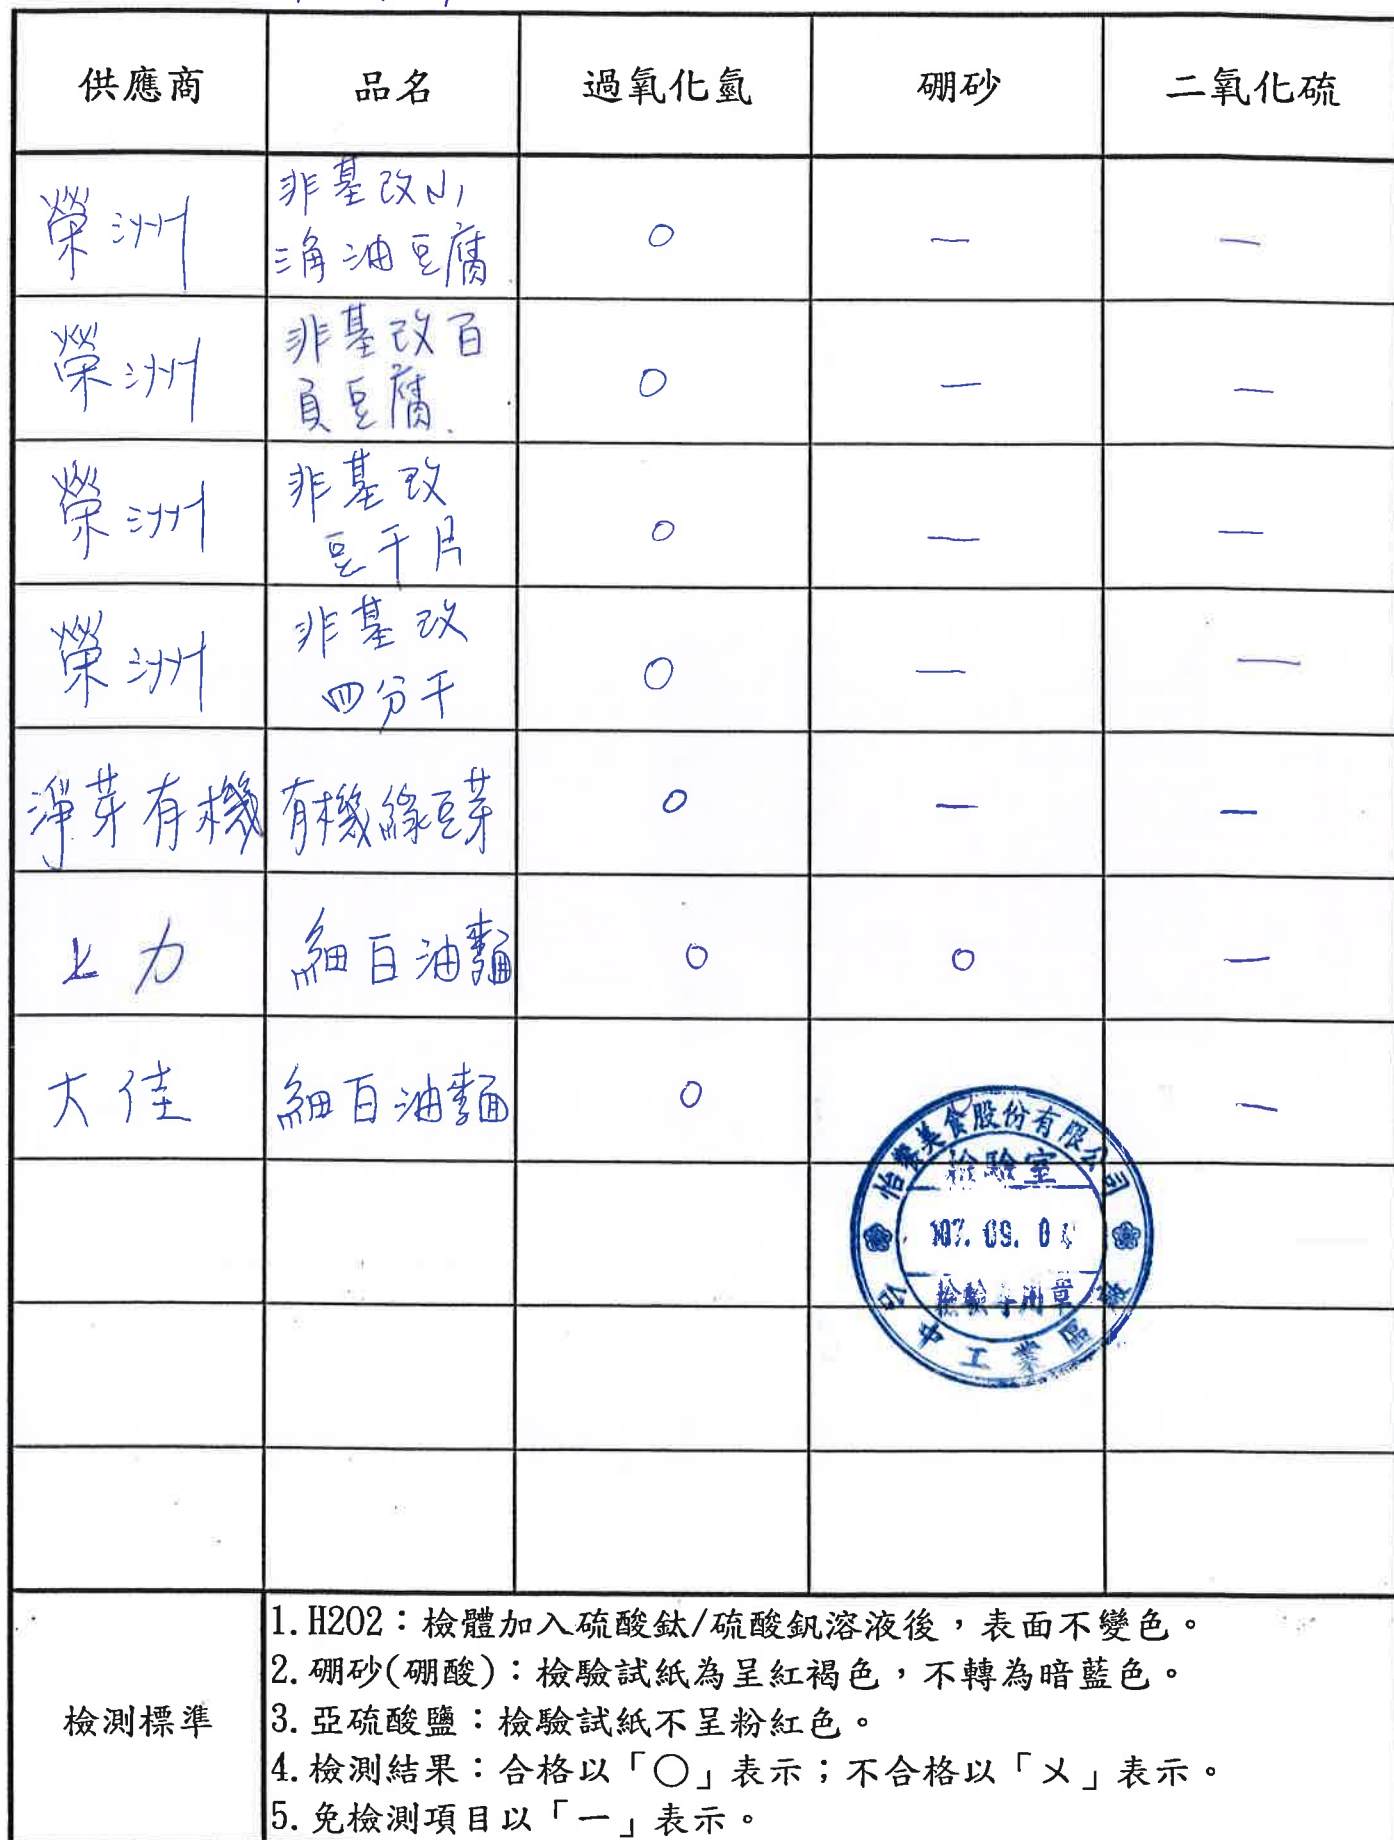 供應商 品名 過氧化氫 硼砂 二氧化硫
榮洲 非基改小 ○ — —
三角油豆腐
榮洲 非基改百 ○ — —
頁豆腐
榮洲 非基改 ○ — —
豆干片
榮洲 非基改 ○ — —
四分干
淨芽有機 有機綠豆芽 ○ — —
上力 細白油麵 ○ ○ —
大佳 細白油麵 ○ —
怡饗美食股份有限公司
檢驗室
107. 09. 0
檢驗專用章
中工業區
檢測標準
1. H2O2：檢體加入硫酸鈦/硫酸釩溶液後，表面不變色。
2. 硼砂(硼酸)：檢驗試紙為呈紅褐色，不轉為暗藍色。
3. 亞硫酸鹽：檢驗試紙不呈粉紅色。
4. 檢測結果：合格以「○」表示；不合格以「ㄨ」表示。
5. 免檢測項目以「一」表示。